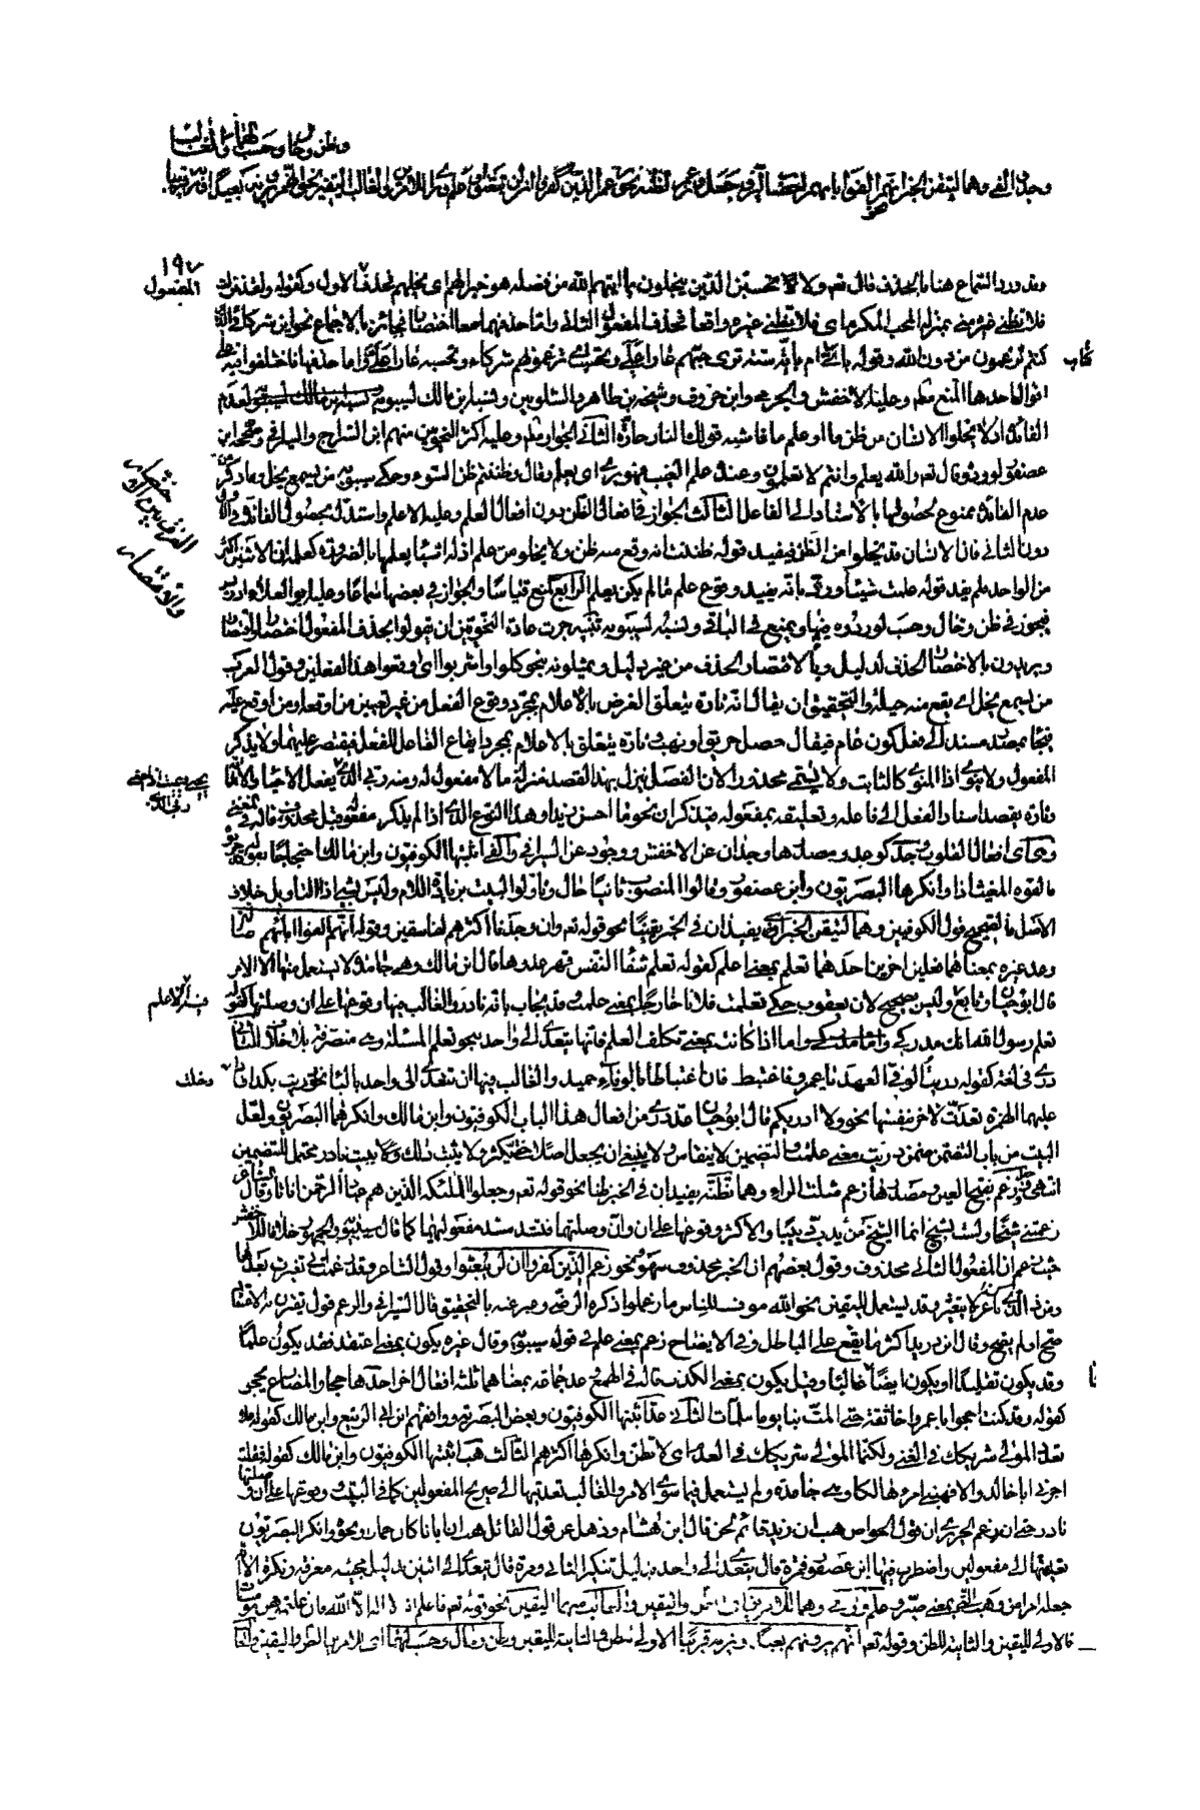 وظن وخال وحسب لهما
وجدا الفى وهما لتيقن الخبر انهم الفوا اباءهم وجعل وزعم لظنه نحو زعم الذين كفروا ان لن يبعثوا وعلم ورأى للامرين والغالب اليقين نحو انهم يرونه بعيدا ونريه قريبا
١٩٧
المفعول
وقد ورد السماع هنا بالحذف قال تعالى ولا تحسبن الذين يبخلون بما اتيهم الله من فضله هو خيرا لهم اى بخلهم فحذف الاول وكقوله ولقد نزلت
فلا تظنى غيره منى بمنزلة المحب المكرم اى فلا تظنى غيره واقعا فحذف المفعول الثانى واما حذفهما معا اختصارا فجائز بالاجماع نحو اين شركائى الذين
كنتم تزعمون من دون الله وقوله باى كتاب ام باية سنة ترى حبهم عارا على وتحسب اى تزعمونهم شركاء وتحسبه عارا على واما حذفهما فاختلفوا فيه على
اقوال احدها المنع مطلقا وعليه الاخفش والجرمى وابن خروف وشيخه ابن طاهر والشلوبين ونسبه ابن مالك لسيبويه لعدم
الفائدة اذ لا يخلو الانسان من ظن ما او علم ما فاشبه قولك النار حارة الثانى الجواز مطلقا وعليه اكثر النحويين منهم ابن السراج والسيرافى وصححه ابن
عصفور لوروده قال تعالى والله يعلم وانتم لا تعلمون وعنده علم الغيب فهو يرى اى يعلم وقال وظننتم ظن السوء وحكى سيبويه من يسمع يخل وما ذكر من
عدم الفائدة ممنوع لحصولها بالاسناد الى الفاعل الثالث الجواز فى افعال الظن دون افعال العلم وعليه الاعلم واستدل بحصول الفائدة فى الاول
دون الثانى فان الانسان قد يخلو من الظن فيفيد قوله ظننت انه وقع منه ظن ولا يخلو من علم اذ له اشياء يعلمها بالضرورة كعلمه ان الاثنين اكثر
من الواحد فلم يفد قوله علمت شيئا ورد بانه يفيد وقوع علم ما لم يكن يعلم الرابع المنع قياسا والجواز فى بعضها سماعا وعليه ابو العلاء ادريس
فيجوز فى ظن وخال وحسب لوروده فيها ويمنع فى الباقى ونسبه لسيبويه تنبيه جرت عادة النحويين ان يقولوا بحذف المفعول اختصارا واقتصارا
ويريدون بالاختصار الحذف لدليل وبالاقتصار الحذف من غير دليل ويمثلونه بنحو كلوا واشربوا اى اوقعوا هذا الفعلين وقول العرب
من يسمع يخل اى يقع منه خيلة والتحقيق ان يقال انه تارة يتعلق الغرض بالاعلام بمجرد وقوع الفعل من غير تعيين من اوقعه او من اوقع عليه
فيجاء بمصدره مسندا الى فعل كون عام فيقال حصل حريق او نهب وتارة يتعلق بالاعلام بمجرد ايقاع الفاعل للفعل فيقتصر عليهما ولا يذكر
المفعول ولا ينوى اذ المنوى كالثابت ولا يسمى محذوفا لان الفعل ينزل بهذا القصد منزلة ما لا مفعول له ومنه ربى الذى يفعل الاحياء والاماتة
وتارة يقصد اسناد الفعل الى فاعله وتعليقه بمفعوله فيذكران نحو ما احسن زيدا وهذا النوع الذى اذا لم يذكر مفعوله قيل محذوف قاله فى المغنى
وجد كوعد ومصدرها وجدان عن الاخفش ووجود عن السيرافى والفى اثبتها الكوفيون وابن مالك
وانكرها البصريون وابن عصفور وقالوا المنصوب ثانيا حال واولوا البيت بزيادة اللام وليس بشئ اذ التاويل خلاف
الاصل فالصحيح قول الكوفيين وهما لتيقن الخبر اى يفيدان فى الخبر يقينا نحو قوله تعالى وان وجدنا اكثرهم لفاسقين وقوله انهم الفوا اباءهم ضالين
وعد غيره بمعناهما فعلين اخرين احدهما تعلم بمعنى اعلم كقوله تعلم شفاء النفس قهر عدوها قال ابن مالك وهى جامدة لا يستعمل منها الا الامر
قال ابو حيان وليس بصحيح لان يعقوب حكى تعلمت فلانا خارجا بمعنى علمت وقد يجاب بانه نادر والغالب فيها وقوعها على ان وصلتها كقوله
تعلم رسول الله انك مدركى واما اذا كانت بمعنى تكلف العلم فانها تتعدى الى واحد نحو تعلم المسئلة وهى متصرفة بلا خلاف الثانى
درى فى لغة كقوله دريت الوفى العهد يا عمرو فاغتبط فان اغتباطا بالوفاء حميد والغالب فيها ان تتعدى الى واحد بالباء نحو دريت بكذا
عليها الهمزة تعدت لاخر بنفسها نحو ولا ادريكم قال ابو حيان عد درى من افعال هذا الباب الكوفيون وابن مالك وانكرها البصريون ولعل
البيت من باب التضمين ضمن دريت معنى علمت والتضمين لا ينقاس ولا ينبغى ان يجعل اصلا حتى يكثر ولا يثبت ذلك ببيت نادر محتمل للتضمين
انتهى وزعم بفتح العين ومصدرها زعم مثلث الزاء وهما لظنه يفيدان فى الخبر ظنا نحو قوله تعالى وجعلوا الملئكة الذين هم عباد الرحمن اناثا وقال الشاعر
زعمتنى شيخا ولست بشيخ انما الشيخ من يدب دبيبا والاكثر وقوعها على ان وان وصلتهما فتسد مسد مفعوليها كما قال سيبويه والجمهور خلافا للاخفش
حيث زعم ان المفعول الثانى محذوف وقول بعضهم ان الخبر محذوف سهو نحو زعم الذين كفروا ان لن يبعثوا وقول الشاعر وقد زعمت انى تغيرت بعدها
ومن ذا الذى يا عز لا يتغير وقد يستعمل لليقين نحو قال السيرافى والزعم قول يقترن به الاعتقاد
صح او لم يصح وقال ابن دريد اكثر ما يقع على الباطل وفى الايضاح زعم بمعنى علم فى قول سيبويه وقال غيره يكون بمعنى اعتقد فقد يكون علما
وقد يكون تقليدا ويكون ايضا ظنا غالبا وقيل يكون بمعنى الكذب قاله فى الهمع عد جماعة بمعناهما ثلثة افعال اخر احدها حجا والمضارع يحجو
كقوله وقد كنت احجو ابا عمرو اخا ثقة حتى المت بنا يوما ملمات الثانى عد اثبتها الكوفيون وبعض البصرية ووافقهم ابن ابى الربيع وابن مالك كقوله فلا
تعدد المولى شريكك فى الغنى ولكنما المولى شريكك فى العدم اى لا تظن وانكرها اكثرهم الثالث هب اثبتها الكوفيون وابن مالك كقوله فقلت
اجرنى ابا خالد والا فهبنى امرءا هالكا وهى جامدة ولم يستعمل فيها سوى الامر والغالب تعديها الى صريح المفعولين كما فى البيت ووقوعها على ان وصلتها
نادر حتى ان زعم الحريرى ان قول الخواص هب ان زيدا قائم لحن قال ابن هشام وذهل عن قول القائل هب ان ابانا كان حمارا ونحوه وانكر البصريون
تعديتها الى مفعولين واضطرب فيها ابن عصفور فمرة قال يتعدى الى واحد بدليل تنكير الثانى ومرة قال يتعدى الى اثنين بدليل مجيئه معرفة ونكرة
جعله امرا من وهب التى بمعنى صير وعلم ورأى وهما للامرين اى الظن واليقين والغالب فيهما اليقين نحو قوله تعالى فاعلم انه لا اله الا الله فان علمتموهن مؤمنات
فالاولى لليقين والثانية للظن وقوله تعالى انهم يرونه بعيدا ونريه قريبا الاولى للظن والثانية لليقين وظن وخال وحسب لهما اى للامرين الظن واليقين